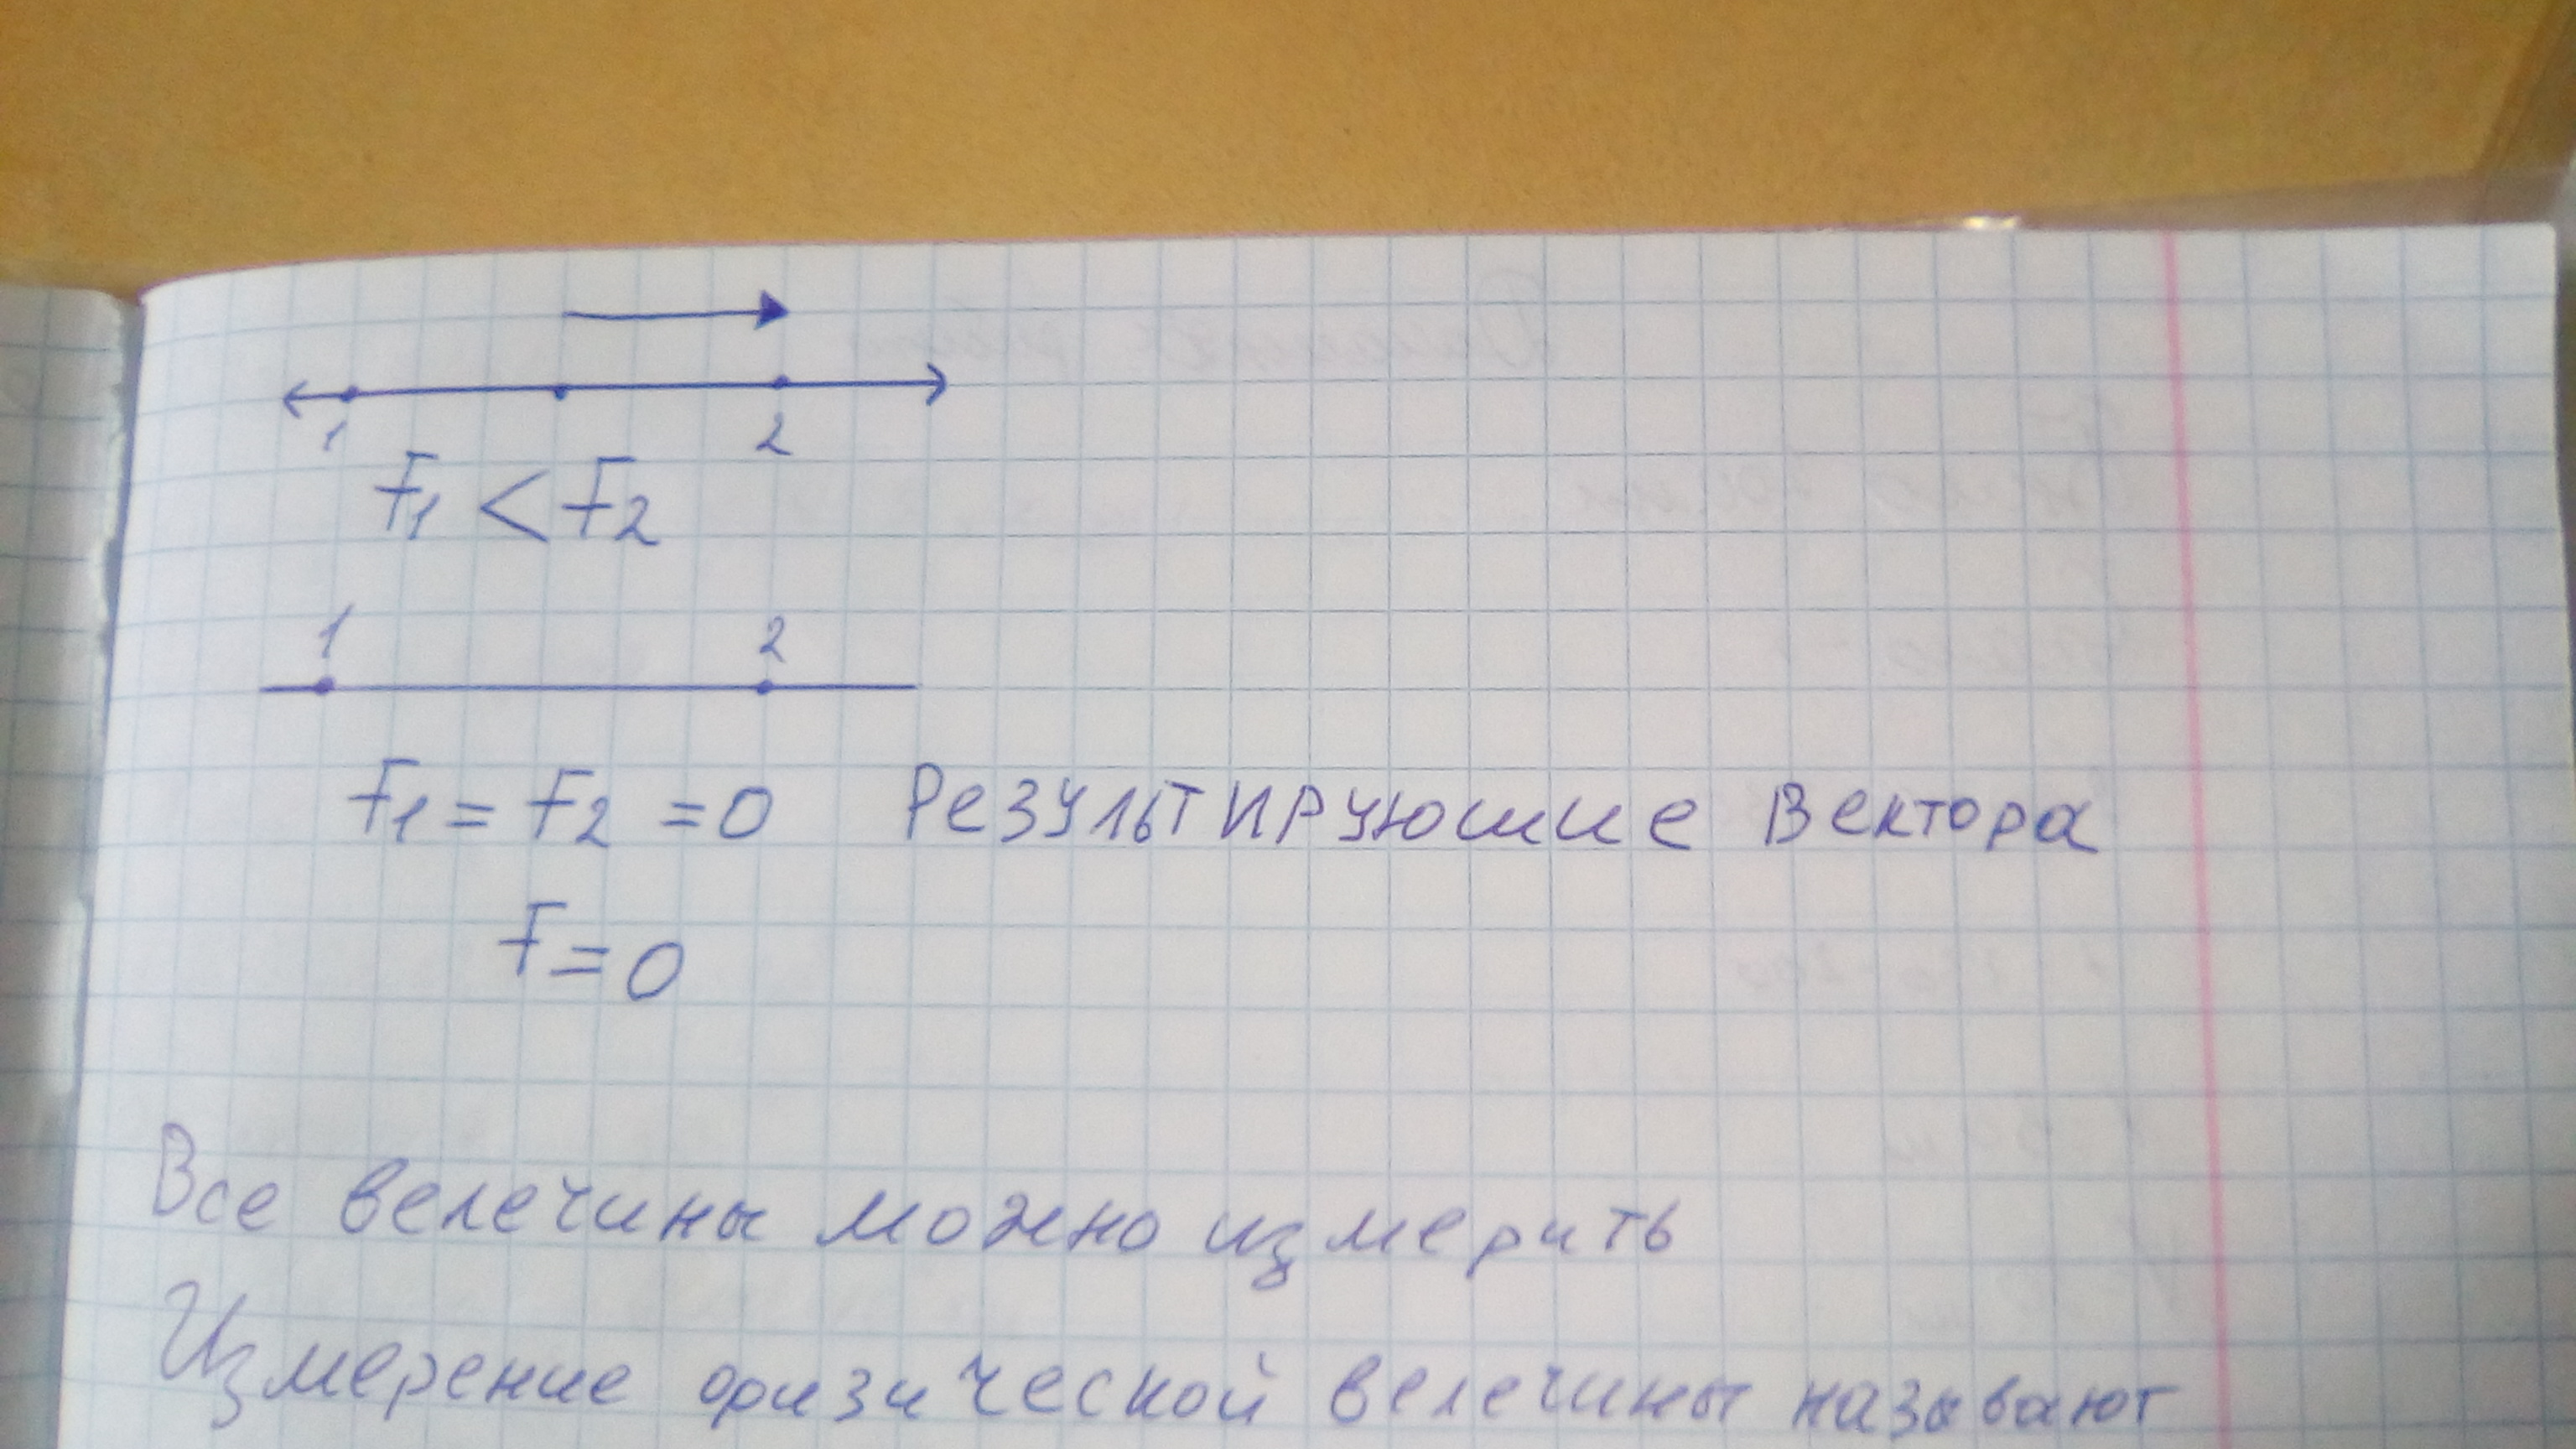 1 2
F1 < F2
1 2
F1 = F2 = 0 Результирующие Вектора
F = 0
Все велечины можно измерить
Измерение физической велечины называют